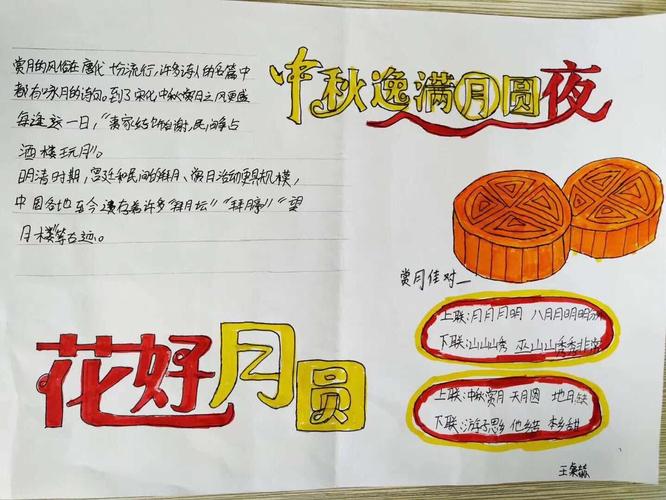 中秋逸满月圆夜
赏月的风俗在唐代十份流行,许多诗人的名篇中
都有咏月的诗句。到了宋代,中秋赏月之风更盛
每逢这一日,"贵家结饰台榭,民间争占
酒楼玩月"。
明清时期,宫廷和民间的拜月、赏月活动更具规模,
中国各地至今遗存着许多"拜月坛""拜月亭""望
月楼"等古迹。
赏月佳对
上联:月月月明 八月月明明分
下联:山山山秀 巫山山秀秀非常
上联:中秋赏月 天月圆 地月缺
下联:游子思乡 他乡苦 本乡甜
花好月圆